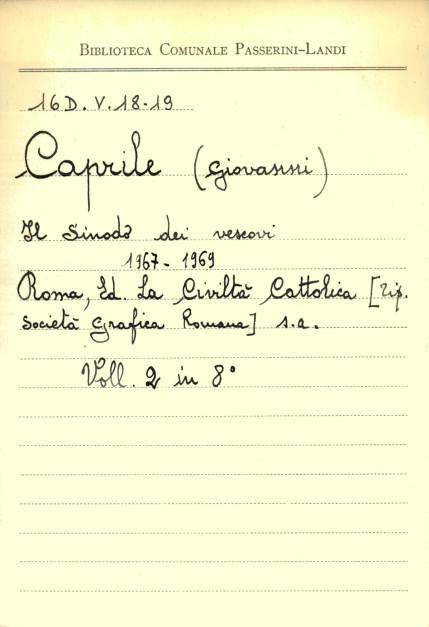 BIBLIOTECA COMUNALE PASSERINI-LANDI
16 D. V. 18-19
Caprile (Giovanni)
Il Sinodo dei vescovi
1967 - 1969
Roma, Ed. La Civiltà Cattolica [Tip.
Società Grafica Romana] s.a.
Voll. 2 in 8°